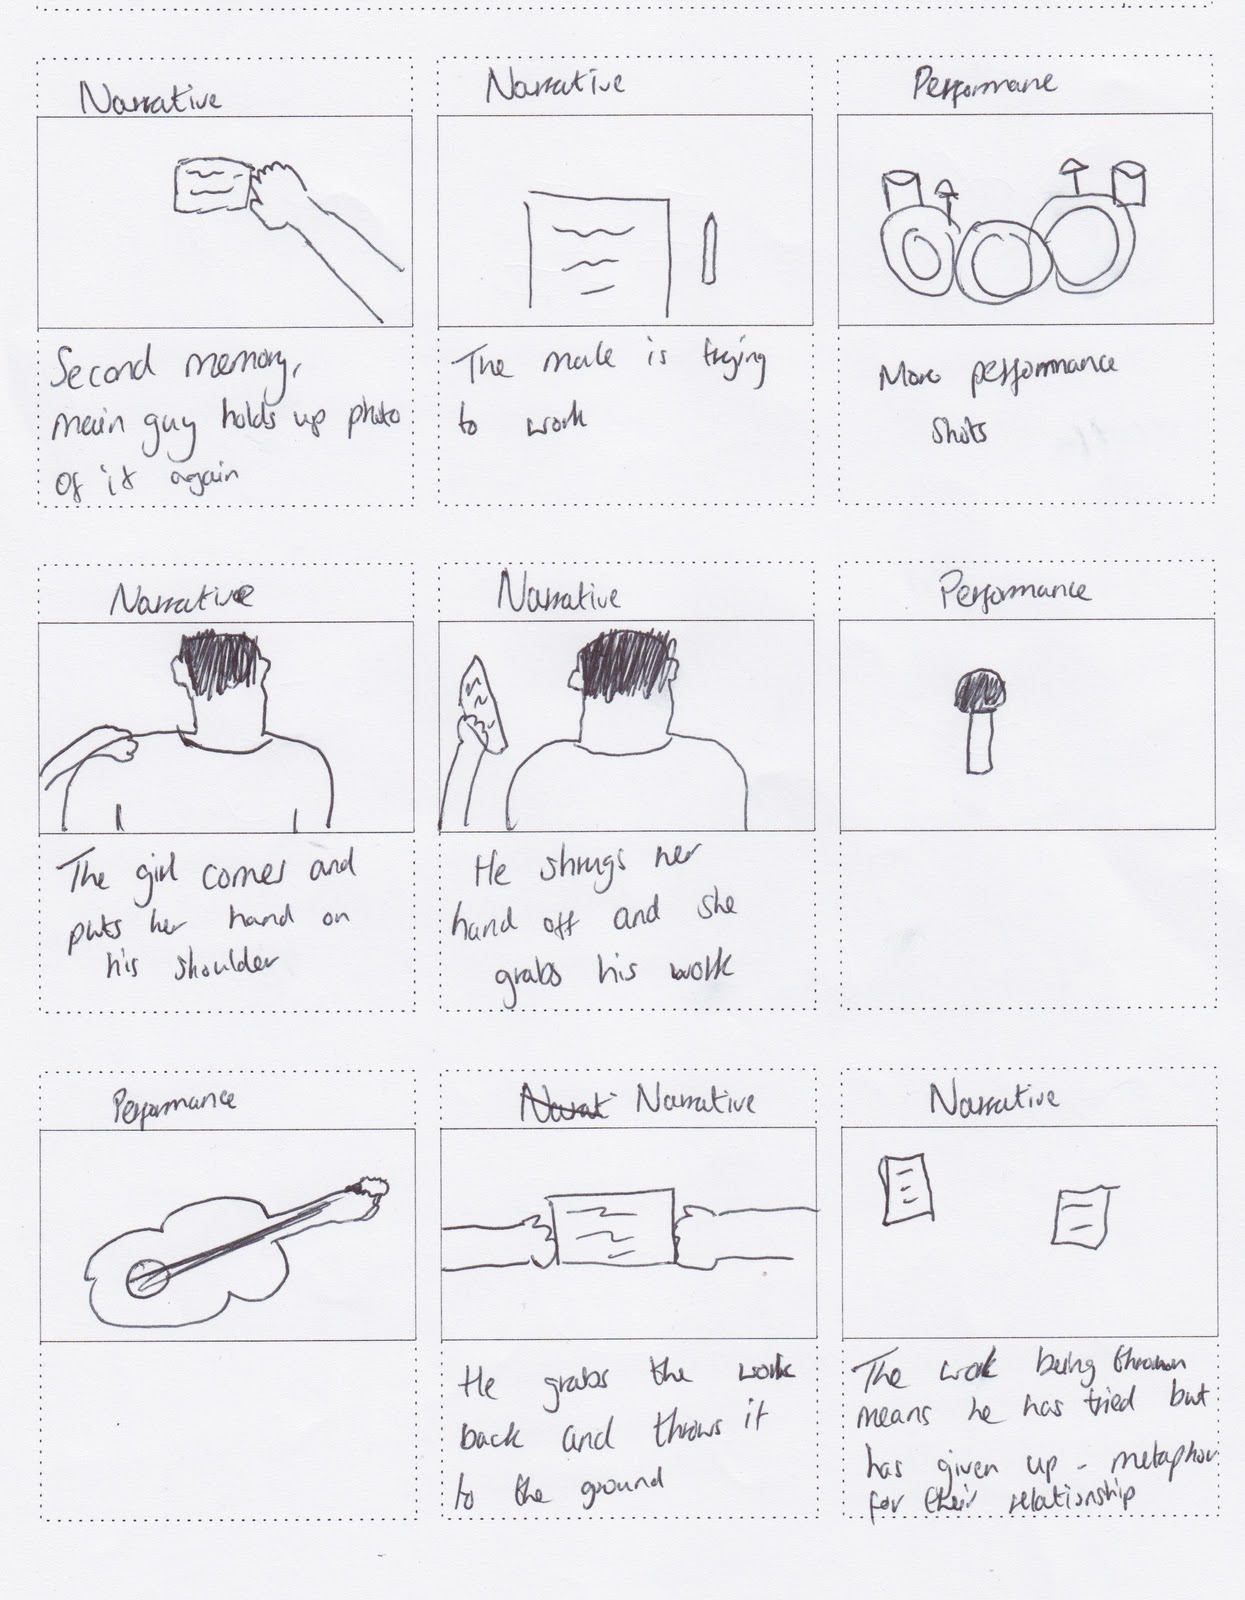 Narrative
Second memory,
main guy holds up photo
of it again
Narrative
The male is trying
to work
Performane
More performance
shots
Narrative
The girl comes and
puts her hand on
his shoulder
Narrative
He shrugs her
hand off and she
grabs his work
Performance
Performance
Narrative
He grabs the work
back and throws it
to the ground
Narrative
The work being thrown
means he has tried but
has given up - metaphor
for their relationship